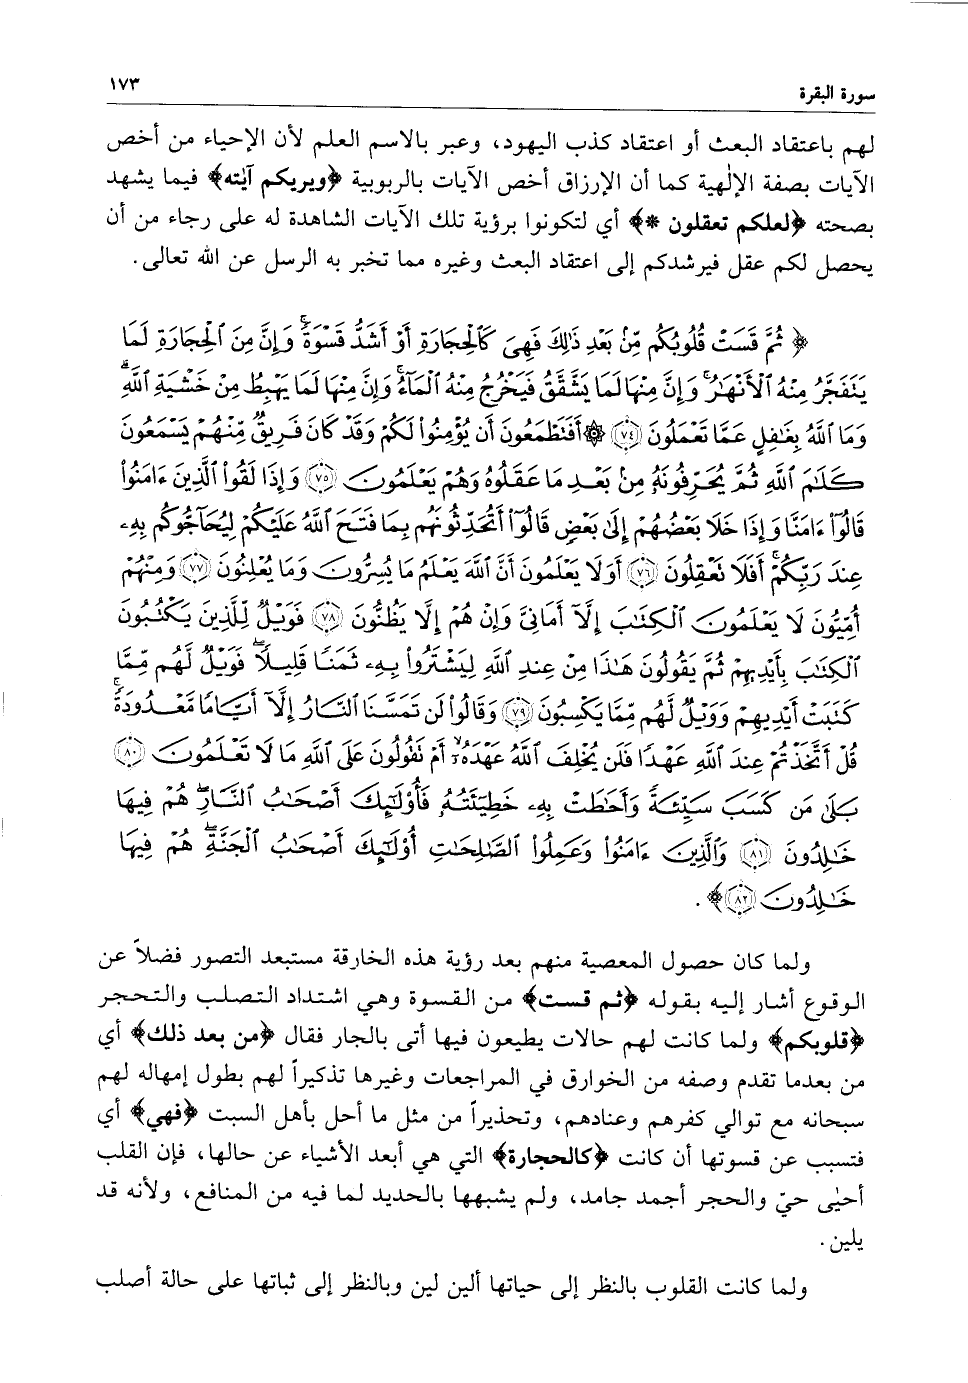 سورة البقرة
١٧٣
لهم باعتقاد البعث أو اعتقاد كذب اليهود، وعبر بالاسم العلم لأن الإحياء من أخص
الآيات بصفة الإلٰهية كما أن الإرزاق أخص الآيات بالربوبية ﴿ويريكم آيٰته﴾ فيما يشهد
بصحته ﴿لعلكم تعقلون *﴾ أي لتكونوا برؤية تلك الآيات الشاهدة له على رجاء من أن
يحصل لكم عقل فيرشدكم إلى اعتقاد البعث وغيره مما تخبر به الرسل عن الله تعالى.
﴿ ثُمَّ قَسَتْ قُلُوبُكُم مِّنۢ بَعْدِ ذَٰلِكَ فَهِىَ كَٱلْحِجَارَةِ أَوْ أَشَدُّ قَسْوَةً ۚ وَإِنَّ مِنَ ٱلْحِجَارَةِ لَمَا
يَتَفَجَّرُ مِنْهُ ٱلْأَنْهَٰرُ ۚ وَإِنَّ مِنْهَا لَمَا يَشَّقَّقُ فَيَخْرُجُ مِنْهُ ٱلْمَآءُ ۚ وَإِنَّ مِنْهَا لَمَا يَهْبِطُ مِنْ خَشْيَةِ ٱللَّهِ ۗ
وَمَا ٱللَّهُ بِغَٰفِلٍ عَمَّا تَعْمَلُونَ ﴿٧٤﴾ ۞ أَفَتَطْمَعُونَ أَن يُؤْمِنُوا۟ لَكُمْ وَقَدْ كَانَ فَرِيقٌ مِّنْهُمْ يَسْمَعُونَ
كَلَٰمَ ٱللَّهِ ثُمَّ يُحَرِّفُونَهُۥ مِنۢ بَعْدِ مَا عَقَلُوهُ وَهُمْ يَعْلَمُونَ ﴿٧٥﴾ وَإِذَا لَقُوا۟ ٱلَّذِينَ ءَامَنُوا۟
قَالُوٓا۟ ءَامَنَّا وَإِذَا خَلَا بَعْضُهُمْ إِلَىٰ بَعْضٍ قَالُوٓا۟ أَتُحَدِّثُونَهُم بِمَا فَتَحَ ٱللَّهُ عَلَيْكُمْ لِيُحَآجُّوكُم بِهِۦ
عِندَ رَبِّكُمْ ۚ أَفَلَا تَعْقِلُونَ ﴿٧٦﴾ أَوَلَا يَعْلَمُونَ أَنَّ ٱللَّهَ يَعْلَمُ مَا يُسِرُّونَ وَمَا يُعْلِنُونَ ﴿٧٧﴾ وَمِنْهُمْ
أُمِّيُّونَ لَا يَعْلَمُونَ ٱلْكِتَٰبَ إِلَّآ أَمَانِىَّ وَإِنْ هُمْ إِلَّا يَظُنُّونَ ﴿٧٨﴾ فَوَيْلٌ لِّلَّذِينَ يَكْتُبُونَ
ٱلْكِتَٰبَ بِأَيْدِيهِمْ ثُمَّ يَقُولُونَ هَٰذَا مِنْ عِندِ ٱللَّهِ لِيَشْتَرُوا۟ بِهِۦ ثَمَنًا قَلِيلًا ۖ فَوَيْلٌ لَّهُم مِّمَّا
كَتَبَتْ أَيْدِيهِمْ وَوَيْلٌ لَّهُم مِّمَّا يَكْسِبُونَ ﴿٧٩﴾ وَقَالُوا۟ لَن تَمَسَّنَا ٱلنَّارُ إِلَّآ أَيَّامًا مَّعْدُودَةً ۚ
قُلْ أَتَّخَذْتُمْ عِندَ ٱللَّهِ عَهْدًا فَلَن يُخْلِفَ ٱللَّهُ عَهْدَهُۥٓ ۖ أَمْ تَقُولُونَ عَلَى ٱللَّهِ مَا لَا تَعْلَمُونَ ﴿٨٠﴾
بَلَىٰ مَن كَسَبَ سَيِّئَةً وَأَحَٰطَتْ بِهِۦ خَطِيٓـَٔتُهُۥ فَأُو۟لَٰٓئِكَ أَصْحَٰبُ ٱلنَّارِ ۖ هُمْ فِيهَا
خَٰلِدُونَ ﴿٨١﴾ وَٱلَّذِينَ ءَامَنُوا۟ وَعَمِلُوا۟ ٱلصَّٰلِحَٰتِ أُو۟لَٰٓئِكَ أَصْحَٰبُ ٱلْجَنَّةِ ۖ هُمْ فِيهَا
خَٰلِدُونَ ﴿٨٢﴾ ﴾.
ولما كان حصول المعصية منهم بعد رؤية هذه الخارقة مستبعد التصور فضلاً عن
الوقوع أشار إليه بقوله ﴿ثم قست﴾ من القسوة وهي اشتداد التصلب والتحجر
﴿قلوبكم﴾ ولما كانت لهم حالات يطيعون فيها أتى بالجار فقال ﴿من بعد ذلك﴾ أي
من بعدما تقدم وصفه من الخوارق في المراجعات وغيرها تذكيراً لهم بطول إمهاله لهم
سبحانه مع توالي كفرهم وعنادهم، وتحذيراً من مثل ما أحل بأهل السبت ﴿فهي﴾ أي
فتسبب عن قسوتها أن كانت ﴿كالحجارة﴾ التي هي أبعد الأشياء عن حالها، فإن القلب
أحيٰى حيّ والحجر أجمد جامد، ولم يشبهها بالحديد لما فيه من المنافع، ولأنه قد
يلين.
ولما كانت القلوب بالنظر إلى حياتها ألين لين وبالنظر إلى ثباتها على حالة أصلب